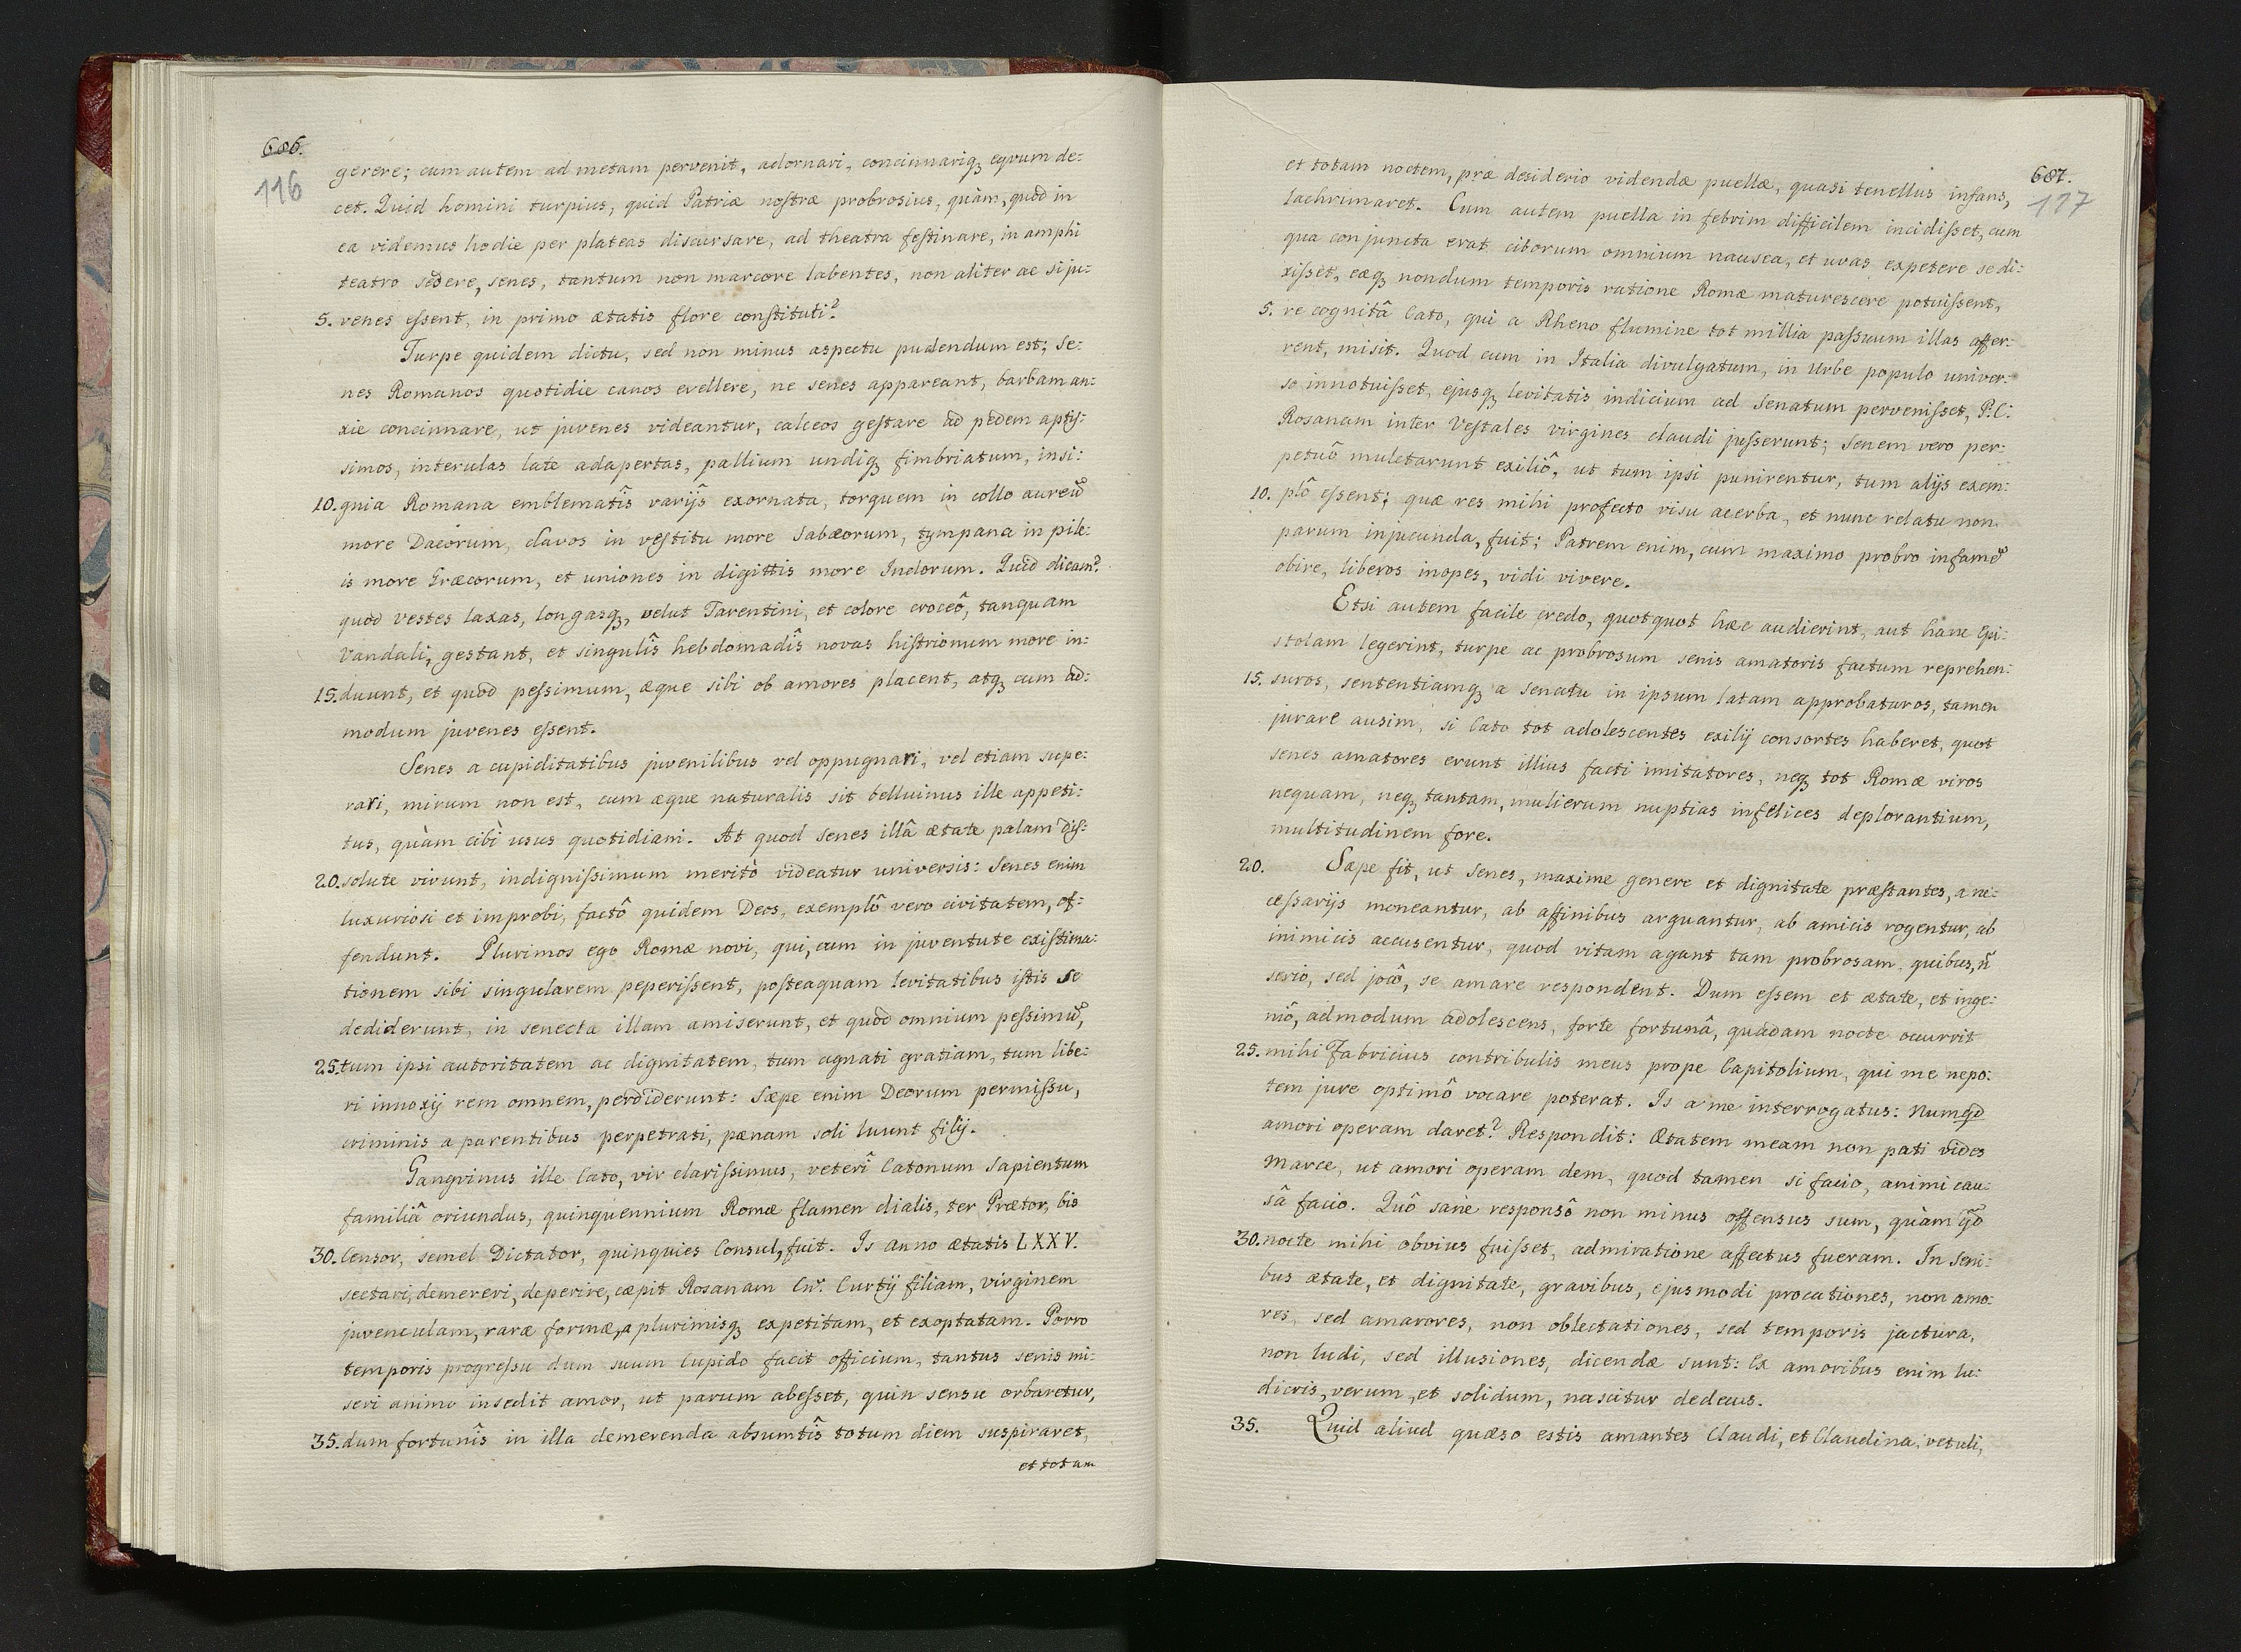 686.
116
gerere; cum autem ad metam pervenit, adornari, concinnariq₃ eqvum de:
cet. Quid homini turpius, quid Patriæ noſtræ probrosius, quàm, quod in
ea videmus hodie per plateas discursare, ad theatra feſtinare, in amphi
teatro sedere, senes, tantum non marcore labentes, non aliter ac si ju:
5. venes eſsent, in primo ætatis flore conſtituti?
Turpe quidem dictu, sed non minus aspectu pudendum est; Se:
nes Romanos quotidie canos evellere, ne senes appareant, barbam an:
xie concinnare, ut juvenes videantur, calceos geſtare ad pedem aptiſ:
simos, interulas late adapertas, pallium undiq₃ fimbriatum, insi:
10. gnia Romana emblematîs varijs exornata, torquem in collo aureũ
more Dacorum, clavos in veſtitu more Sabæorum, tympana in pile:
is more Græcorum, et uniones in digittis more Indorum. Quid dicam?
quod vestes laxas, longasq₃, velut Tarentini, et colore croceô, tanquam
Vandali, gestant, et singulîs hebdomadîs novas hiſtrionum more in:
15. duunt, et quod peſsimum, æque sibi ob amores placent, atq₃ cum ad:
modum juvenes eſsent.
Senes a cupiditatibus juvenilibus vel oppugnari, vel etiam supe:
rari, mirum non est, cum æque naturalis sit belluinus ille appeti:
tus, quàm cibi usus quotidiani. At quod senes illâ ætate palam diſ:
20. solute vivunt, indigniſsimum meritò videatur universis: Senes enim
luxuriosi et improbi, factô quidem Deos, exemplô vero civitatem, of:
fendunt. Plurimos ego Romæ novi, qui, cum in juventute exiſtima:
tionem sibi singularem peperiſsent, poſteaquam levitatibus iſtis se
dediderunt, in senecta illam amiserunt, et quod omnium peſsimũ,
25. tum ipsi autoritatem ac dignitatem, tum agnati gratiam, tum libe:
ri innoxij rem omnem, perdiderunt: Sæpe enim Deorum permiſsu,
criminis a parentibus perpetrati, pænam soli luunt filij.
Gangvinus ille Cato, vir clariſsimus, veteri Catonum Sapientum
familiâ oriundus, quinquennium Romæ flamen dialis, ter Prætor, bis
30. Censor, semel Dictator, quinquies Consul, fuit. Is anno ætatis LXXV.
sectari, demereri, deperire, cæpit Rosanam Cn. Curtij filiam, virginem
juvenculam, raræ formæ, a plurimisq₃ expetitam, et exoptatam. Porro
temporis progreſsu dum suum Cupido facit officium, tantus senis mi:
seri animo insedit amor, ut parum abeſset, quin sensu orbaretur,
35. dum fortunîs in illa demerenda absumtîs totum diem suspiraret,
et totam
687.
117
et totam noctem, præ desiderio videndæ puellæ, quasi tenellus infans,
lachrumaret. Cum autem puella in febrim difficilem incidiſset, cum
qua conjuncta erat ciborum omnium nausea, et uvas expetere se di:
xiſset, eæq₃ nondum temporis ratione Romæ maturescere potuiſsent,
5. re cognitâ Cato, qui a Rheno flumine tot millia paſsuum illas affer:
rent, misit. Quod cum in Italia divulgatum, in Urbe populo univer:
so innotuiſset, ejusq₃ levitatis indicium ad Senatum perveniſset, P.C:
Rosanam inter Veſtales virgines claudi juſserunt; Senem vero per:
petuô mulctarunt exiliô, ut tum ipsi punirentur, tum alijs exem:
10. plô eſsent; quæ res mihi profecto visu acerba, et nunc relatu non
parum injucunda, fuit; Patrem enim, cum maximo probro infamẽ
obire, liberos inopes, vidi vivere.
Etsi autem facile credo, quotquot hæc audierint, aut hanc Epi:
stolam legerint, turpe ac probrosum senis amatoris factum reprehen:
15. suros, sententiamq₃ a senatu in ipsum latam approbaturos, tamen
jurare ausim, si Cato tot adolescentes exilij consortes haberet, quot
senes amatores erunt illius facti imitatores, neq₃ tot Romæ viros
nequam, neq₃ tantam, mulierum nuptias infelices deplorantium,
multitudinem fore.
20. Sæpe fit, ut Senes, maxime genere et dignitate præſtantes, a ne:
ceſsarijs moneantur, ab affinibus arguantur, ab amicis rogentur, ab
inimicis accusentur, quod vitam agant tam probrosam, quibus, ñ
serio, sed jocô, se amare respondent. Dum eſsem et ætate, et inge:
niô, admodum adolescens, forte fortunâ, quadam nocte occurrit
25. mihi Fabricius contribulis meus prope Capitolium, qui me nepo:
tem jure optimô vocare poterat. Is a me interrogatus: Numqd
amori operam daret? Respondit: Ætatem meam non pati vides
Marce, ut amori operam dem, quod tamen si facio, animi cau:
sâ facio. Quô sanè responsô non minus offensus sum, quàm qd
30. nocte mihi obvius fuiſset, admiratione affectus fueram. In Seni:
bus ætate, et dignitate, gravibus, ejusmodi procationes, non amo:
res, sed amarores, non oblectationes, sed temporis jactura,
non ludi, sed illusiones, dicendæ sunt: Ex amoribus enim lu:
dicris, verum, et solidum, nascitur dedecus.
35. Quid aliud quæso estis amantes Claudi, et Claudina, vetuli,